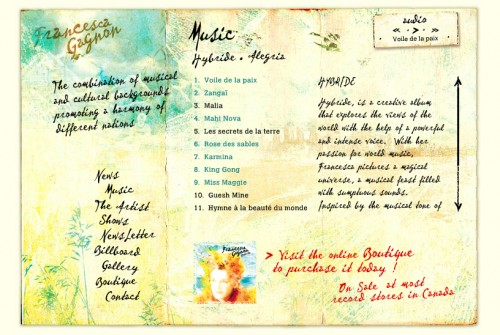 Francesca
Gagnon
The combination of musical
and cultural backgrounds
promoting a harmony of
different nations
News
Music
The Artist
Shows
NewsLetter
Billboard
Gallery
Boutique
Contact
Music
Hybride • Alegria
1. Voile de la paix
2. Zangaï
3. Malia
4. Mahi Nova
5. Les secrets de la terre
6. Rose des sables
7. Karmina
8. King Gong
9. Miss Maggie
10. Guesh Mine
11. Hymne à la beauté du monde
audio
< • >
Voile de la paix
HYBRIDE
Hybride, is a creative album
that explores the views of the
world with the help of a powerful
and intense voice. With her
passion for world music,
Francesca pictures a magical
universe, a musical feast filled
with sumptuous sounds.
Inspired by the musical tone of
> Visit the online Boutique
to purchase it today !
On Sale at most
record stores in Canada